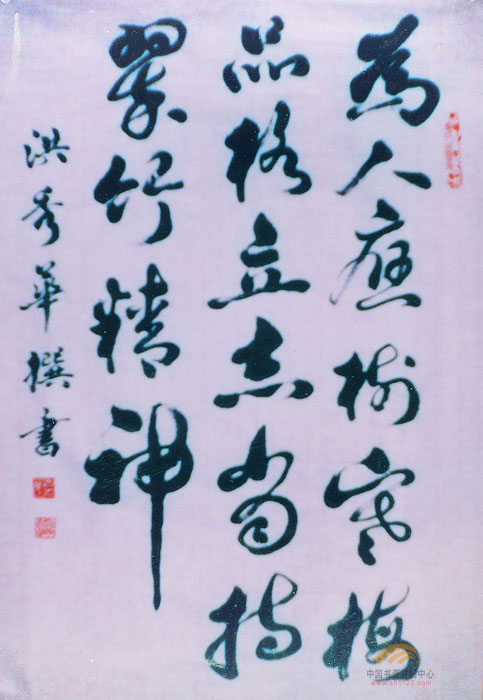 為人應樹寒梅
品格立志當持
翠竹精神
洪秀華撰書
中国书画	中心